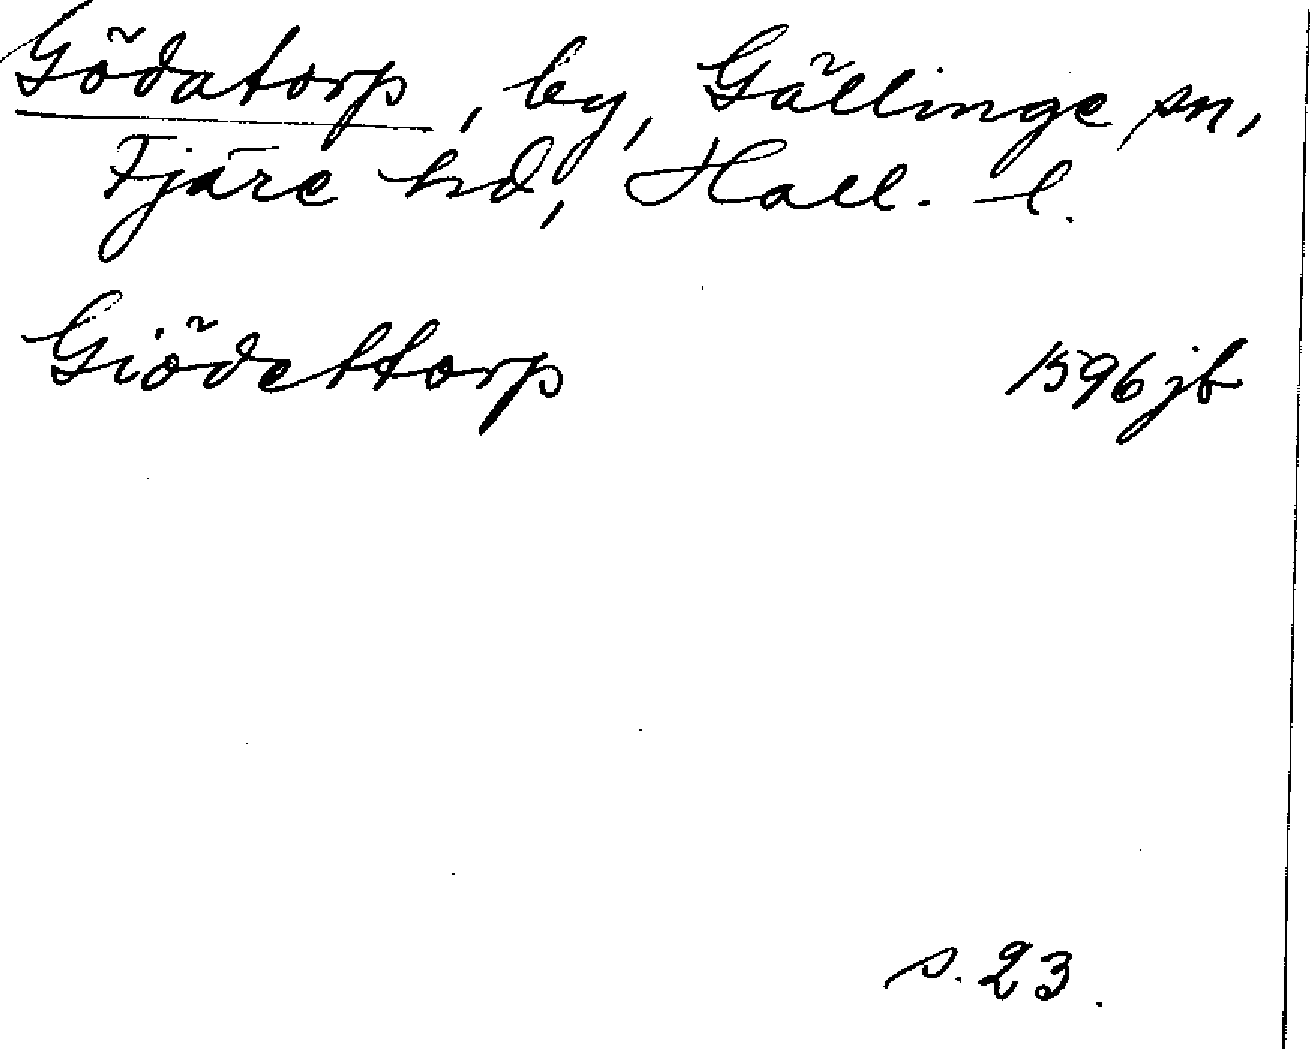 Gödatorp, by, Gällinge sn,
Fjäre hd, Hall. l.
Giödettorp 1596 jb
s. 23.